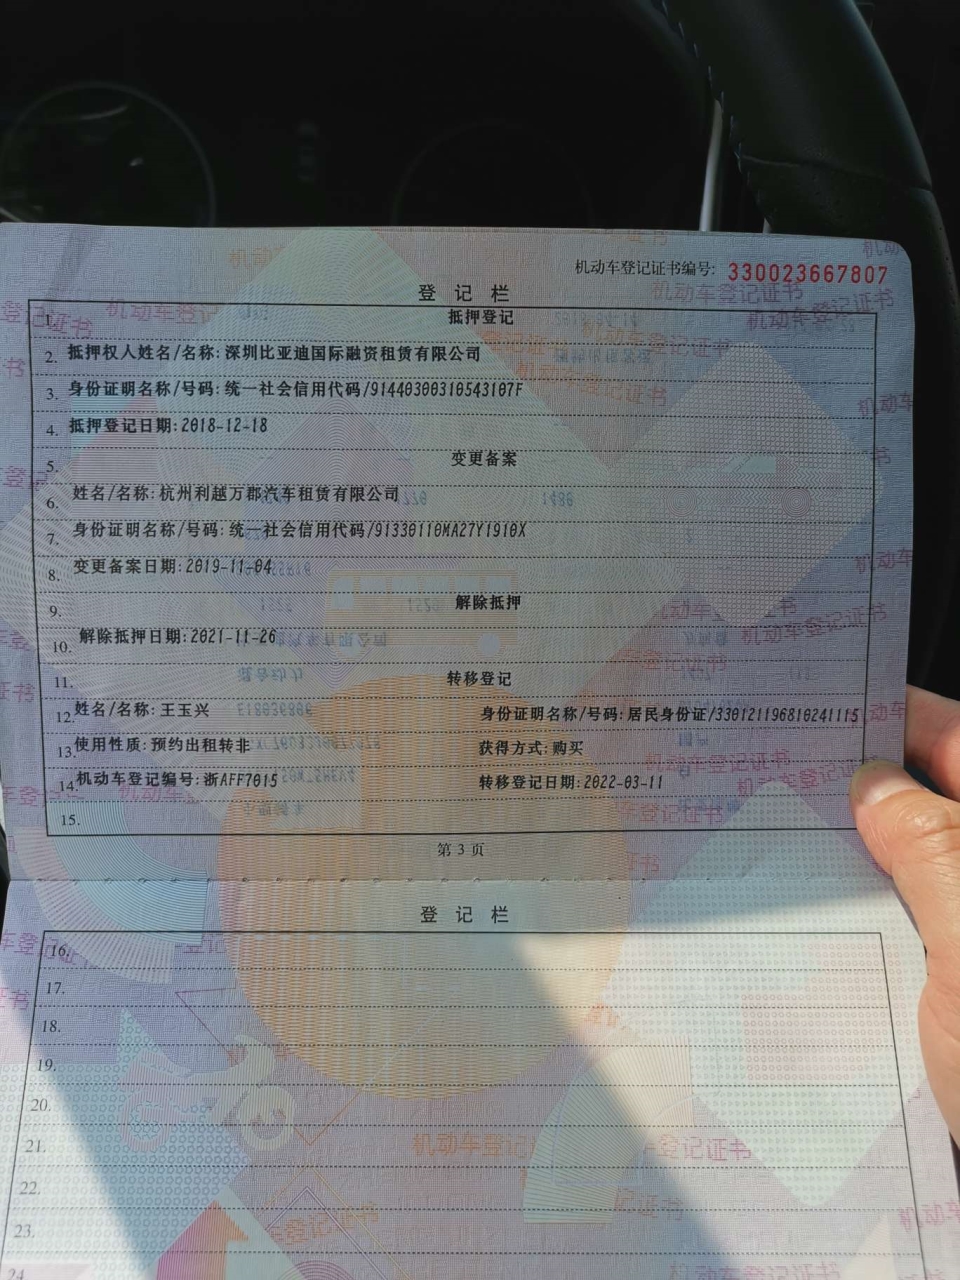 机动车登记证书编号: 330023667807
登 记 栏
1. 抵押登记
2. 抵押权人姓名/名称: 深圳比亚迪国际融资租赁有限公司
3. 身份证明名称/号码: 统一社会信用代码/91440300310543107F
4. 抵押登记日期: 2018-12-18
5. 变更备案
6. 姓名/名称: 杭州利越万郡汽车租赁有限公司
7. 身份证明名称/号码: 统一社会信用代码/91330110MA27Y1910X
8. 变更备案日期: 2019-11-04
9. 解除抵押
10. 解除抵押日期: 2021-11-26
11. 转移登记
12. 姓名/名称: 王玉兴 身份证明名称/号码: 居民身份证/330121196810241115
13. 使用性质: 预约出租转非 获得方式: 购买
14. 机动车登记编号: 浙AFF7015 转移登记日期: 2022-03-11
15.
第 3 页
登 记 栏
16.
17.
18.
19.
20.
21.
22.
23.
24.